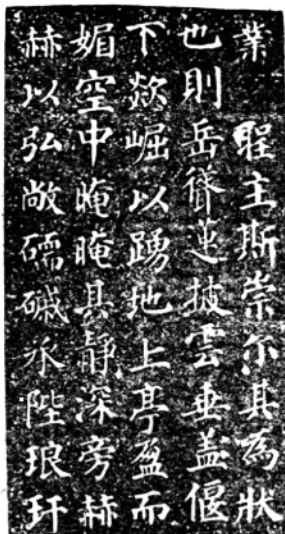 業 聖主斯崇尔其為狀
也則岳聳蓮披雲垂盖偃
下欻崛以踴地上亭盈而
媚空中晻晻其靜深旁赫
赫以弘敞礝磩承陛琅玕